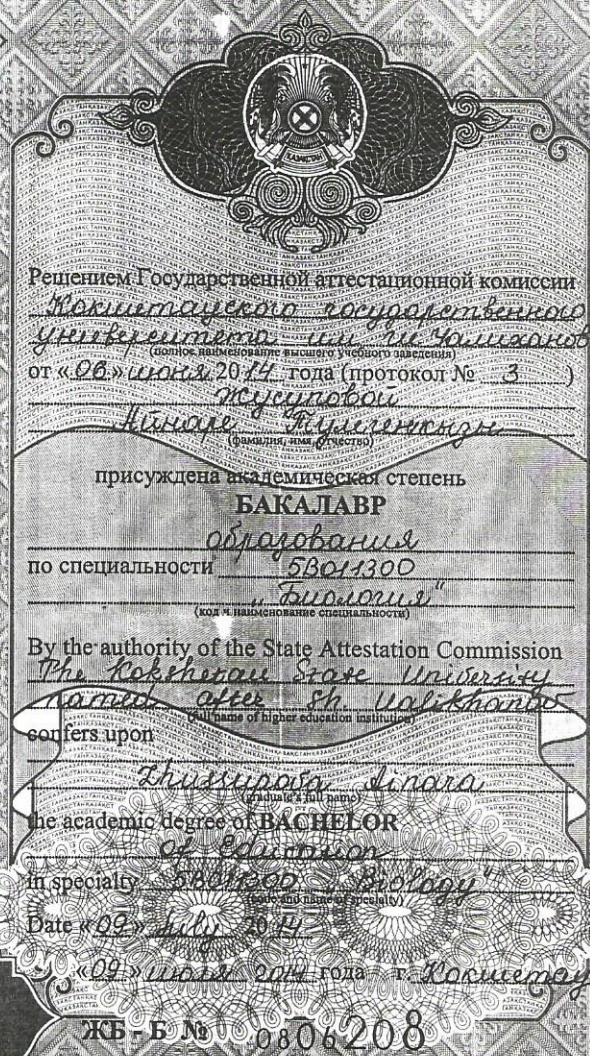 ҚАЗАҚСТАН
Решением Государственной аттестационной комиссии
Кокшетауского государственного
университета им. Ш. Уалиханов
(полное наименование высшего учебного заведения)
от «06» июня 2014 года (протокол № 3 )
Жусуповой
Айнаре Тулегенкызы
(фамилия, имя, отчество)
присуждена академическая степень
БАКАЛАВР
образования
по специальности 5В011300
„Биология"
(код и наименование специальности)
By the authority of the State Attestation Commission
The Kokshetau State University
named after Sh. Ualikhanov
(full name of higher education institution)
confers upon
Zhussupova Ainara
(graduate's full name)
the academic degree of BACHELOR
of Education
in specialty 5B011300 „Biology"
(code and name of specialty)
Date «09» July 2014
«09» июля 2014 года г. Кокшетау
ЖБ - Б № 0806208